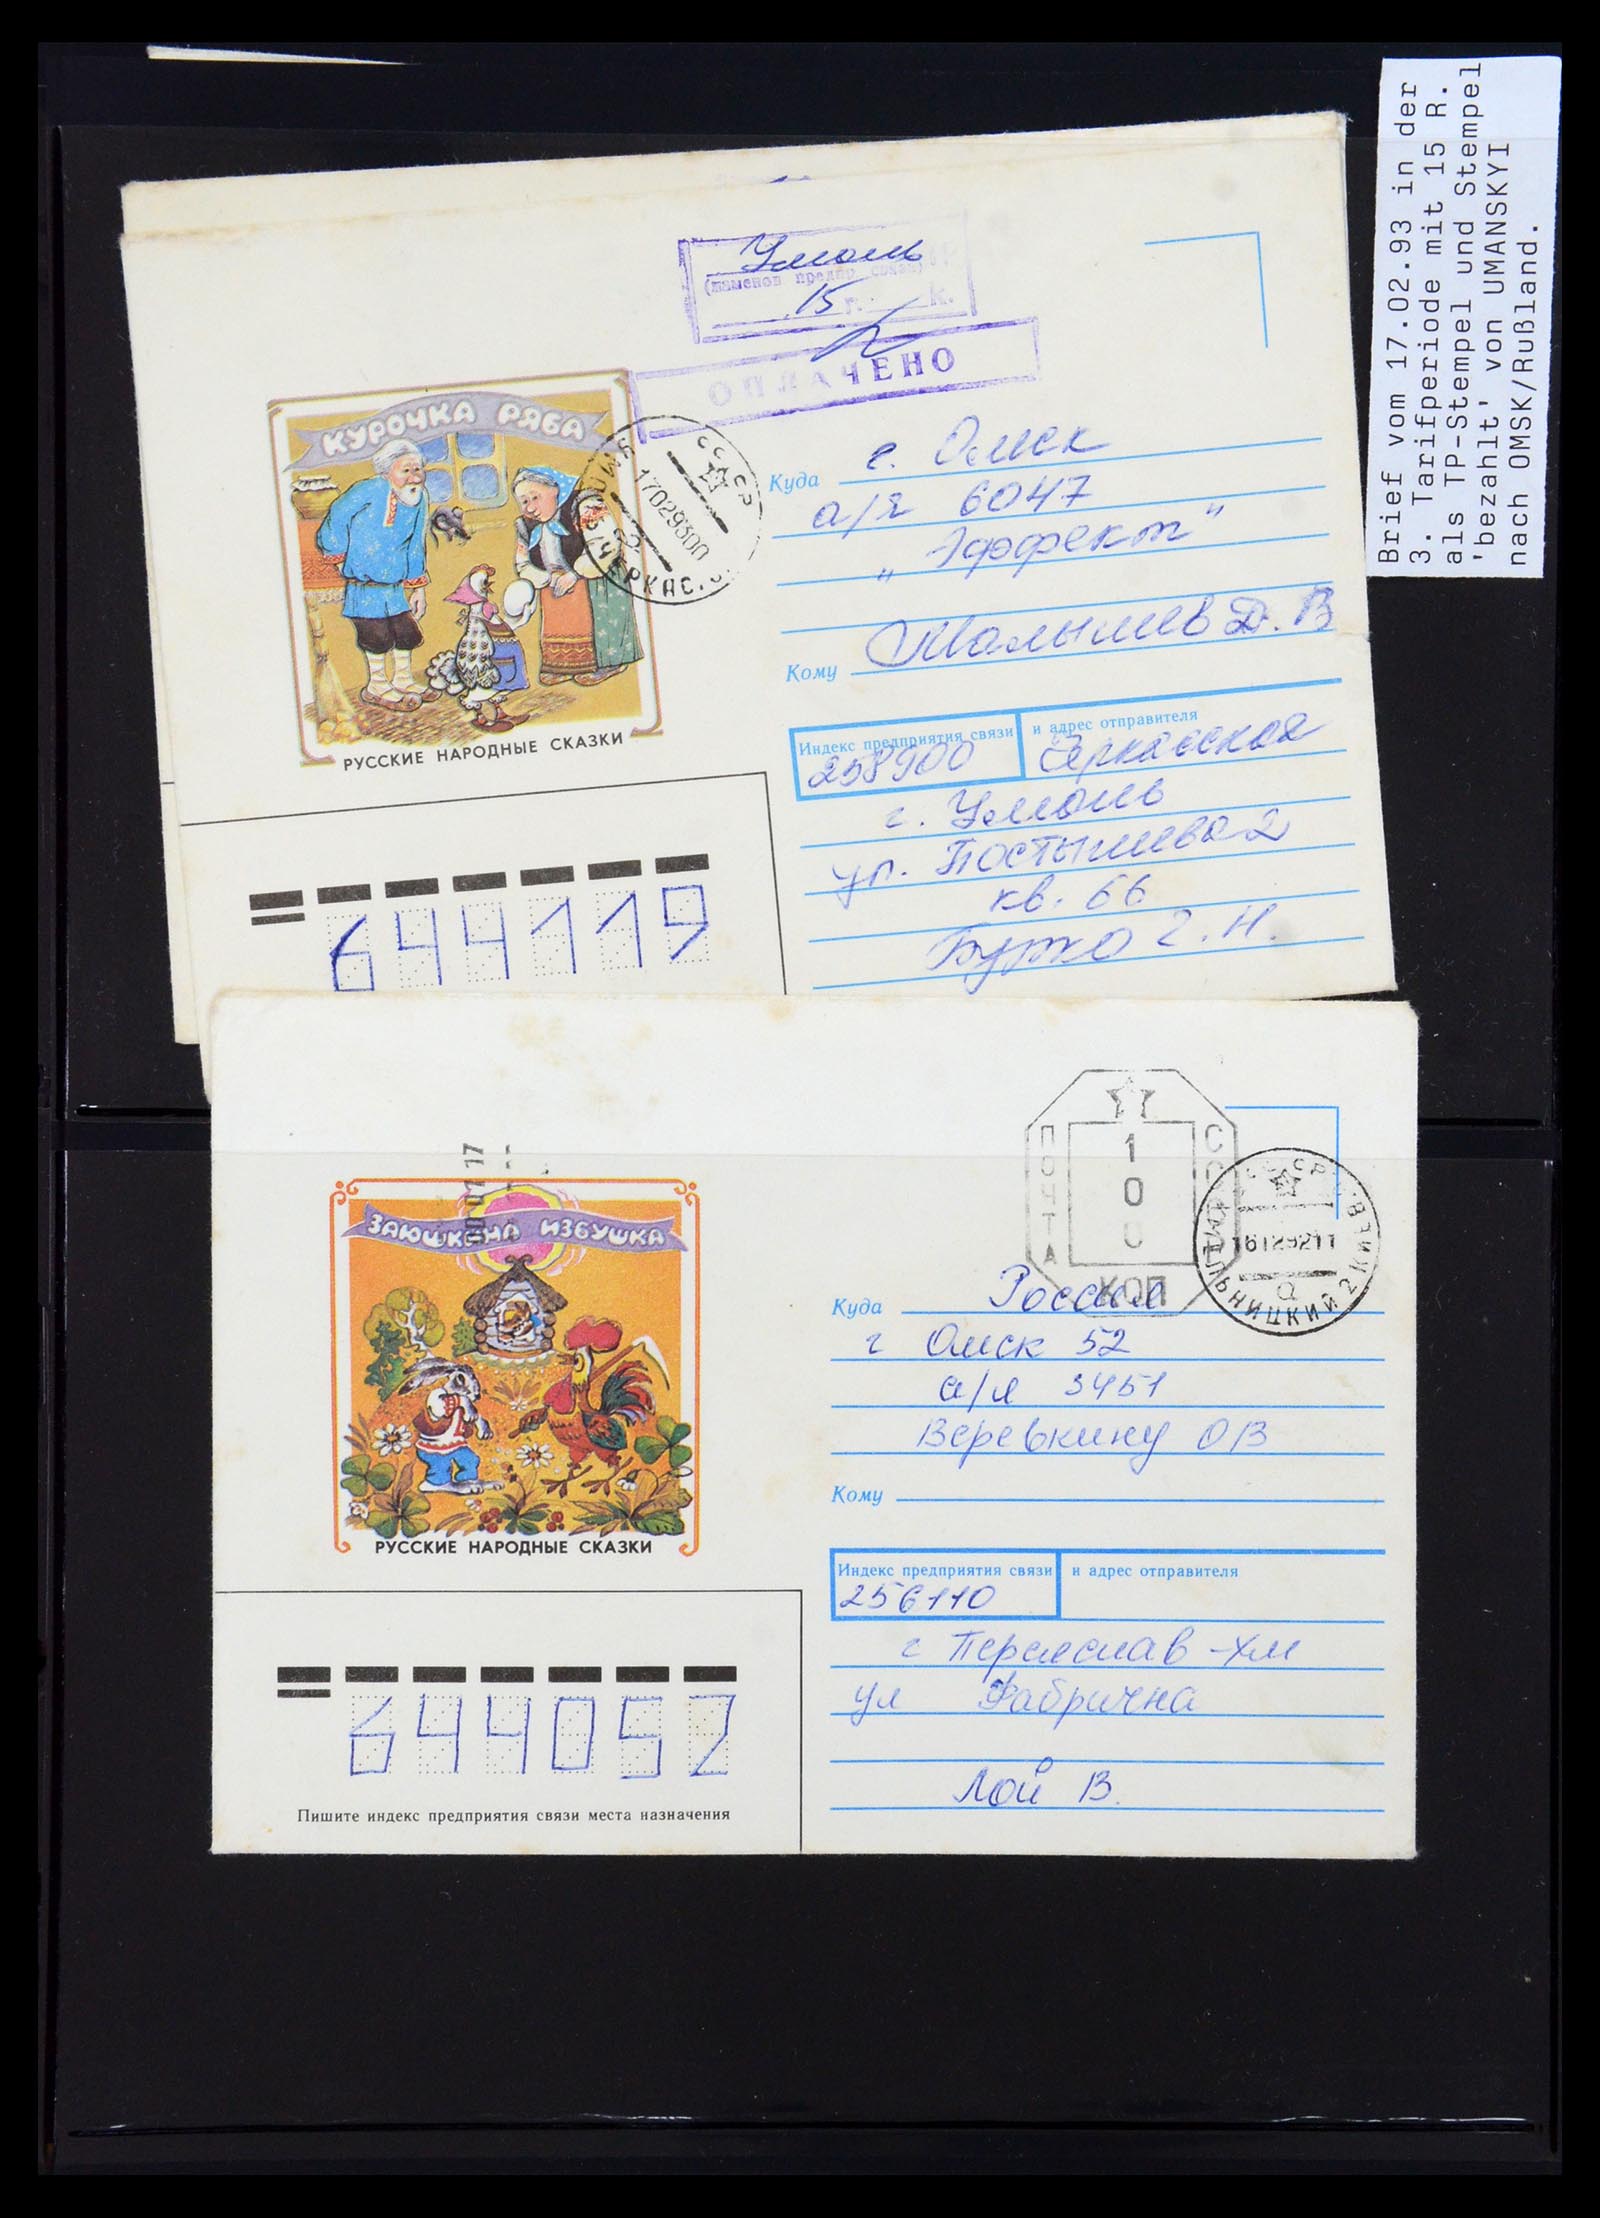 Brief vom 17.02.93 in der
3. Tarifperiode mit 15 R.
als TP-Stempel und Stempel
'bezahlt' von UMANSKYI
nach OMSK/Rußland.
Умань
15 г. к.
ОПЛАЧЕНО
КУРОЧКА РЯБА
РУССКИЕ НАРОДНЫЕ СКАЗКИ
СССР
1702930
ЧЕРКАС.
Куда г. Омск
а/я 6047
„Эффект"
Кому Малышев Д. В
Индекс предприятия связи и адрес отправителя
258900 Черкасская
г. Умань
ул. Постышева 2
кв. 66
Бутко Г. Н.
644119
ПОЧТА
100
КОП
ЗАЮШКИНА ИЗБУШКА
РУССКИЕ НАРОДНЫЕ СКАЗКИ
Куда Россия
г Омск 52
а/я 3451
Веревкину ОВ
Кому
Индекс предприятия связи и адрес отправителя
256110
г Переяслав-Хм
ул Фабрична
Лой В.
644052
Пишите индекс предприятия связи места назначения